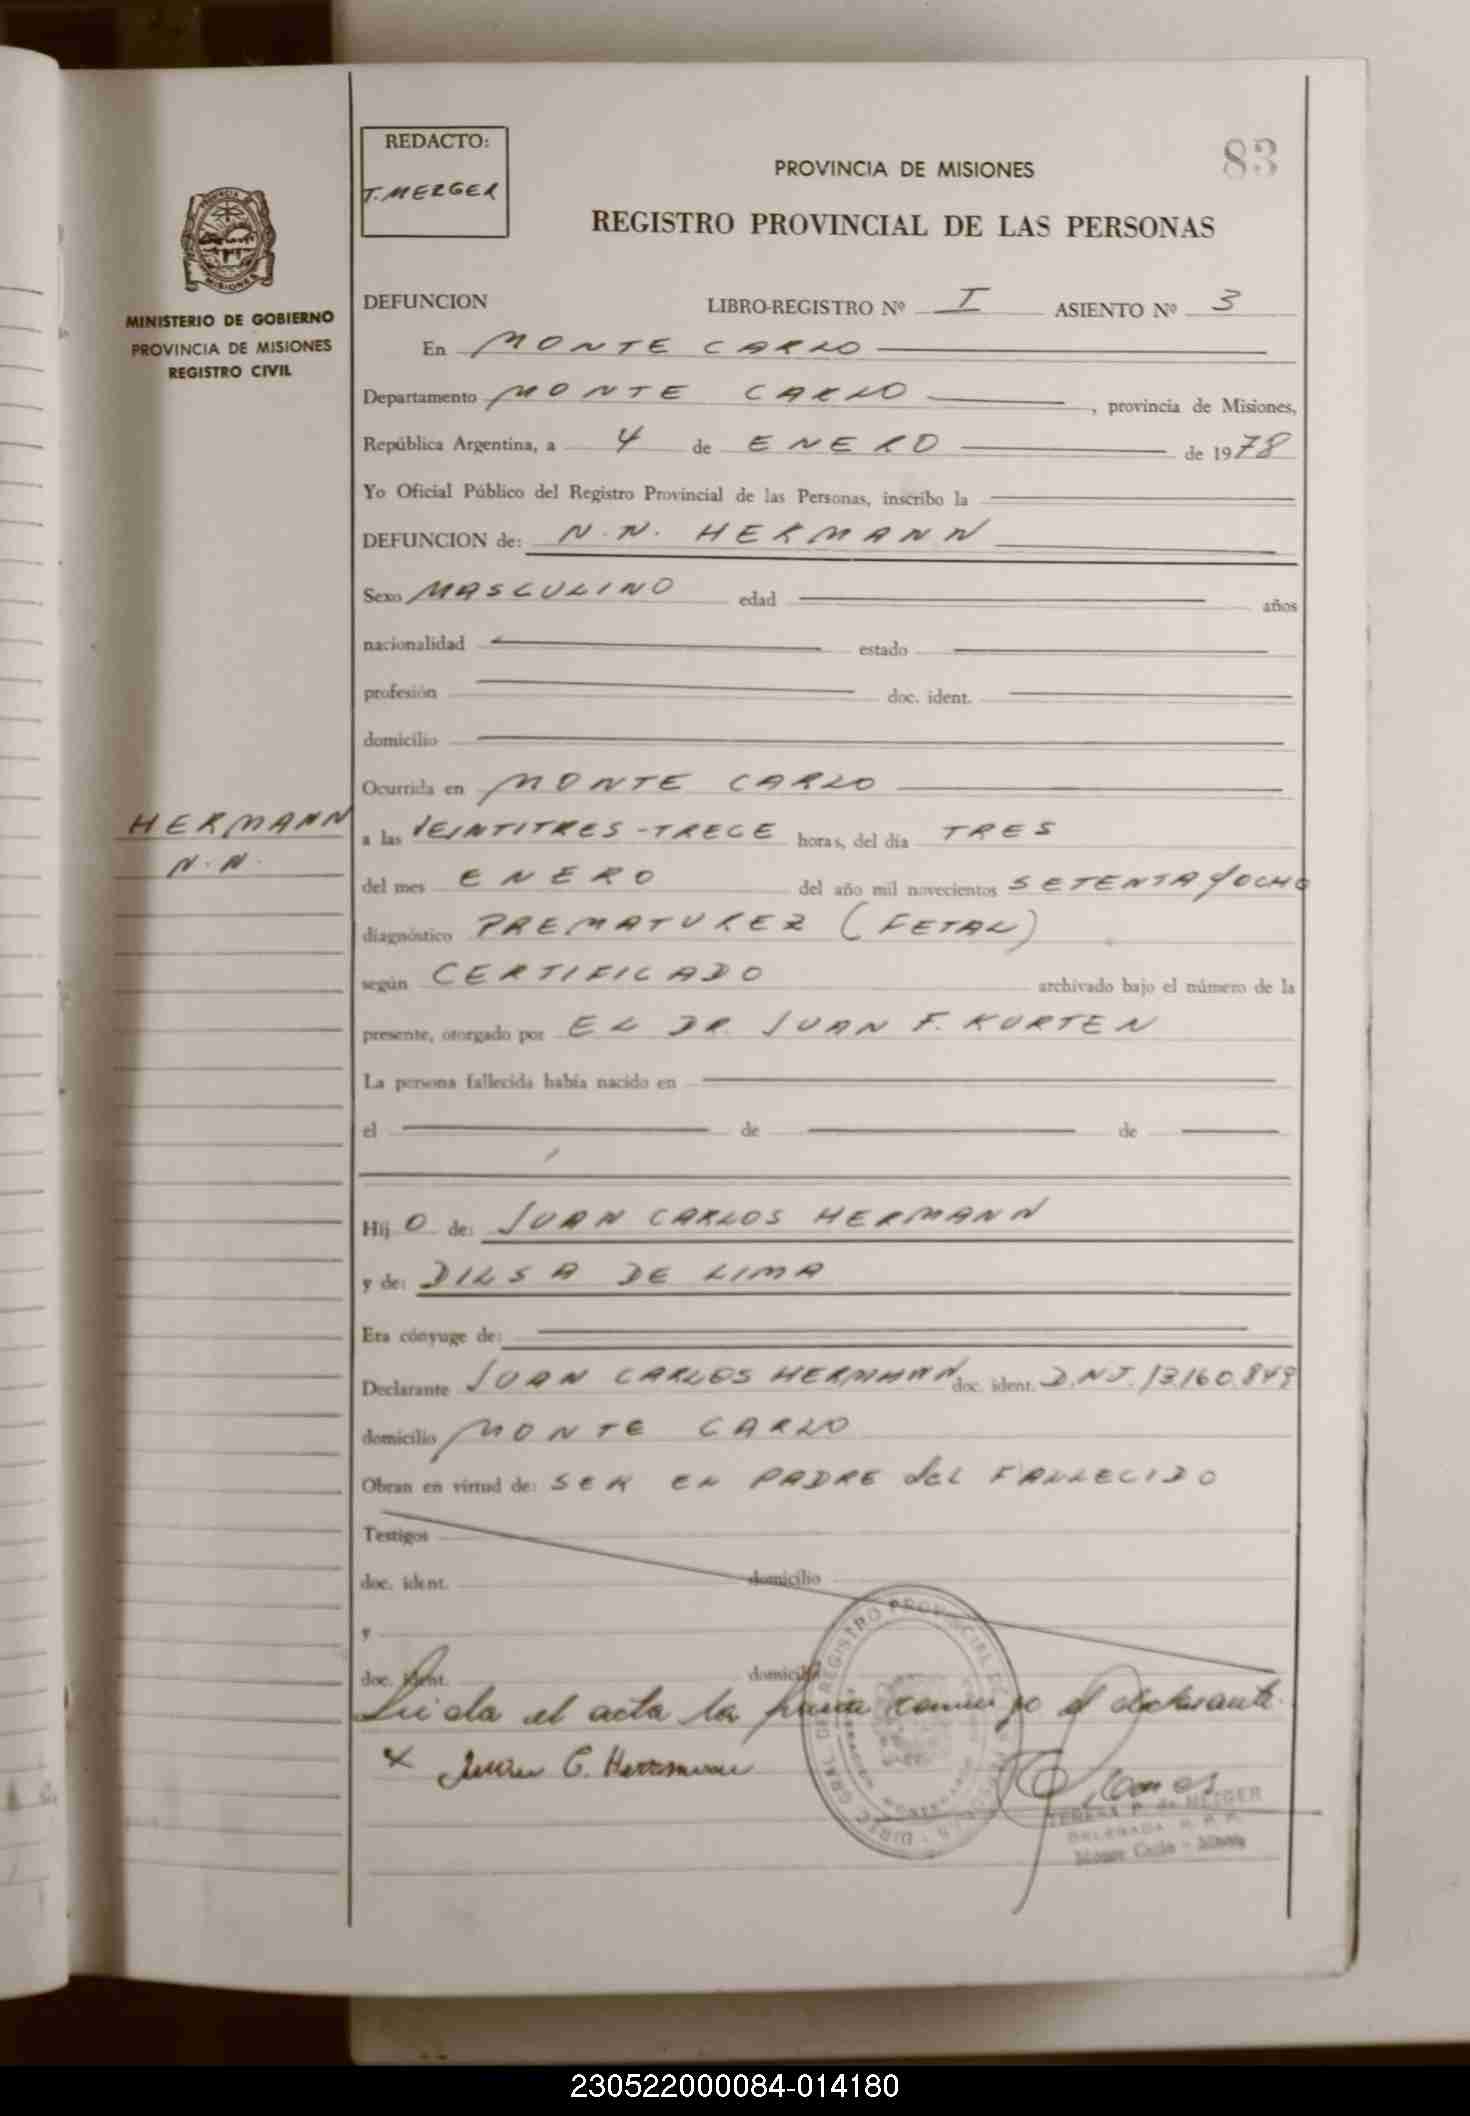 REDACTO:
T. MERGER
83
PROVINCIA DE MISIONES
REGISTRO PROVINCIAL DE LAS PERSONAS
MINISTERIO DE GOBIERNO
PROVINCIA DE MISIONES
REGISTRO CIVIL
DEFUNCION LIBRO-REGISTRO Nº I ASIENTO Nº 3
En MONTE CARLO
Departamento MONTE CARLO, provincia de Misiones,
República Argentina, a 4 de ENERO de 1978
Yo Oficial Público del Registro Provincial de las Personas, inscribo la
DEFUNCION de: N.N. HERMANN
Sexo MASCULINO edad años
nacionalidad estado
profesión doc. ident.
domicilio
Ocurrida en MONTE CARLO
HERMANN
N.N.
a las VEINTITRES-TRECE horas, del día TRES
del mes ENERO del año mil novecientos SETENTA y OCHO
diagnóstico PREMATUREZ (FETAL)
según CERTIFICADO archivado bajo el número de la
presente, otorgado por EL DR. JUAN F. KURTEN
La persona fallecida había nacido en
el de de
Hij O de: JUAN CARLOS HERMANN
y de: DILSA DE LIMA
Era cónyuge de:
Declarante JUAN CARLOS HERMANN doc. ident. D.N.I. 13.160.849
domicilio MONTE CARLO
Obran en virtud de: SER EL PADRE del FALLECIDO
Testigos
doc. ident. domicilio
y
doc. ident. domicilio
Leida el acta la firma conmigo el declarante.
x Juan C. Herrmann
TERESA P. de MERGER
DELEGADA R. P. P.
Monte Carlo - Mnes
230522000084-014180